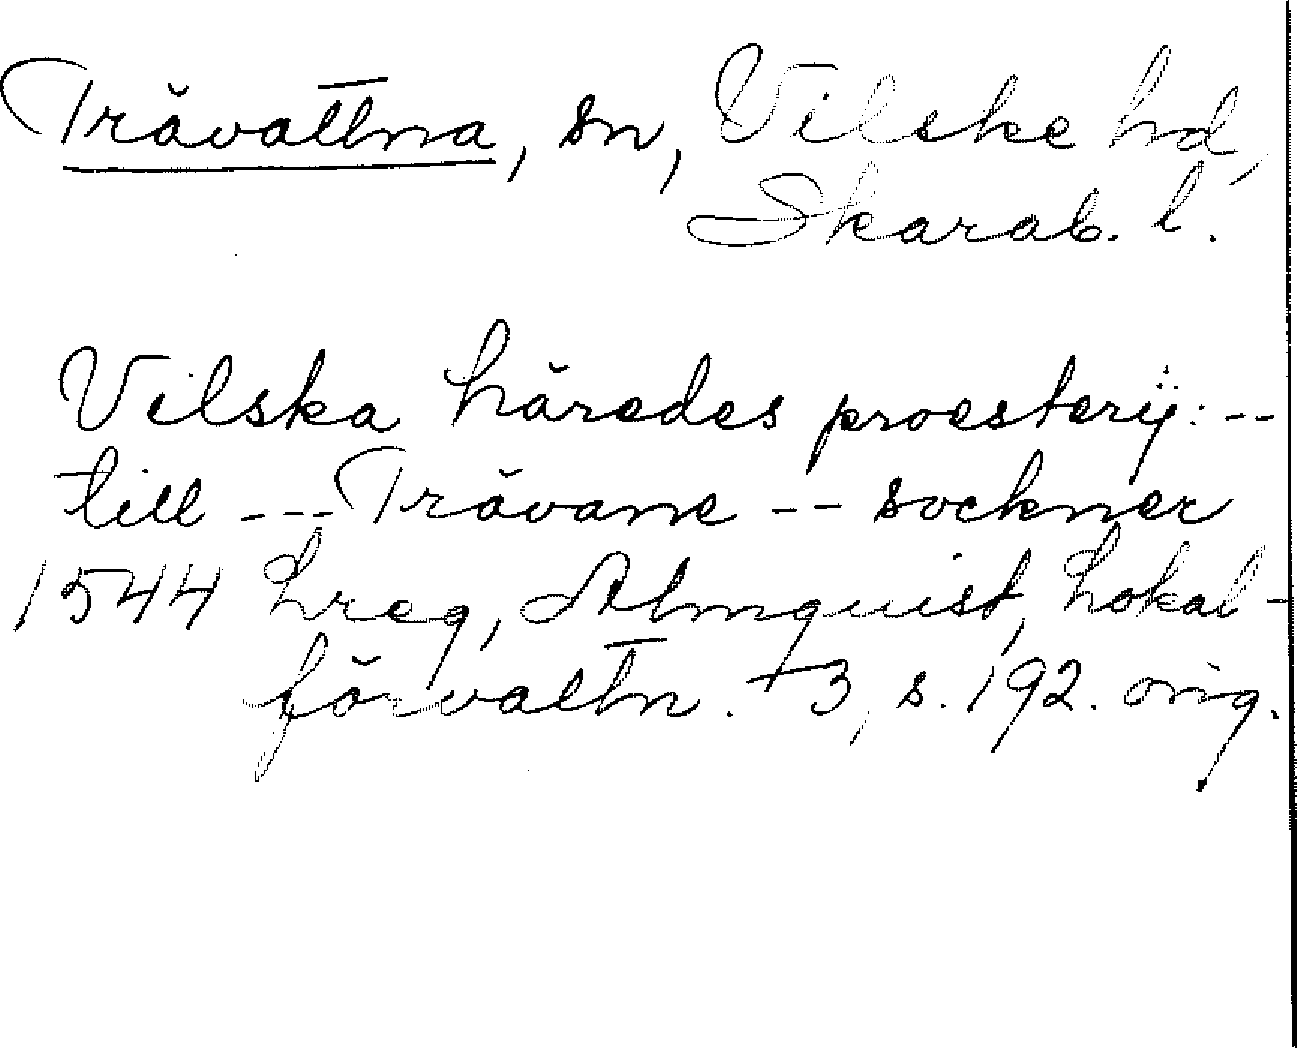 Trävattna, sn, Vilske hd,
Skarab. l.
Vilska häredes proesterÿ: --
till --- Trävane -- sockner
1544 Lreg, Almquist, Lokal-
förvaltn. +3, s. 192. orig.